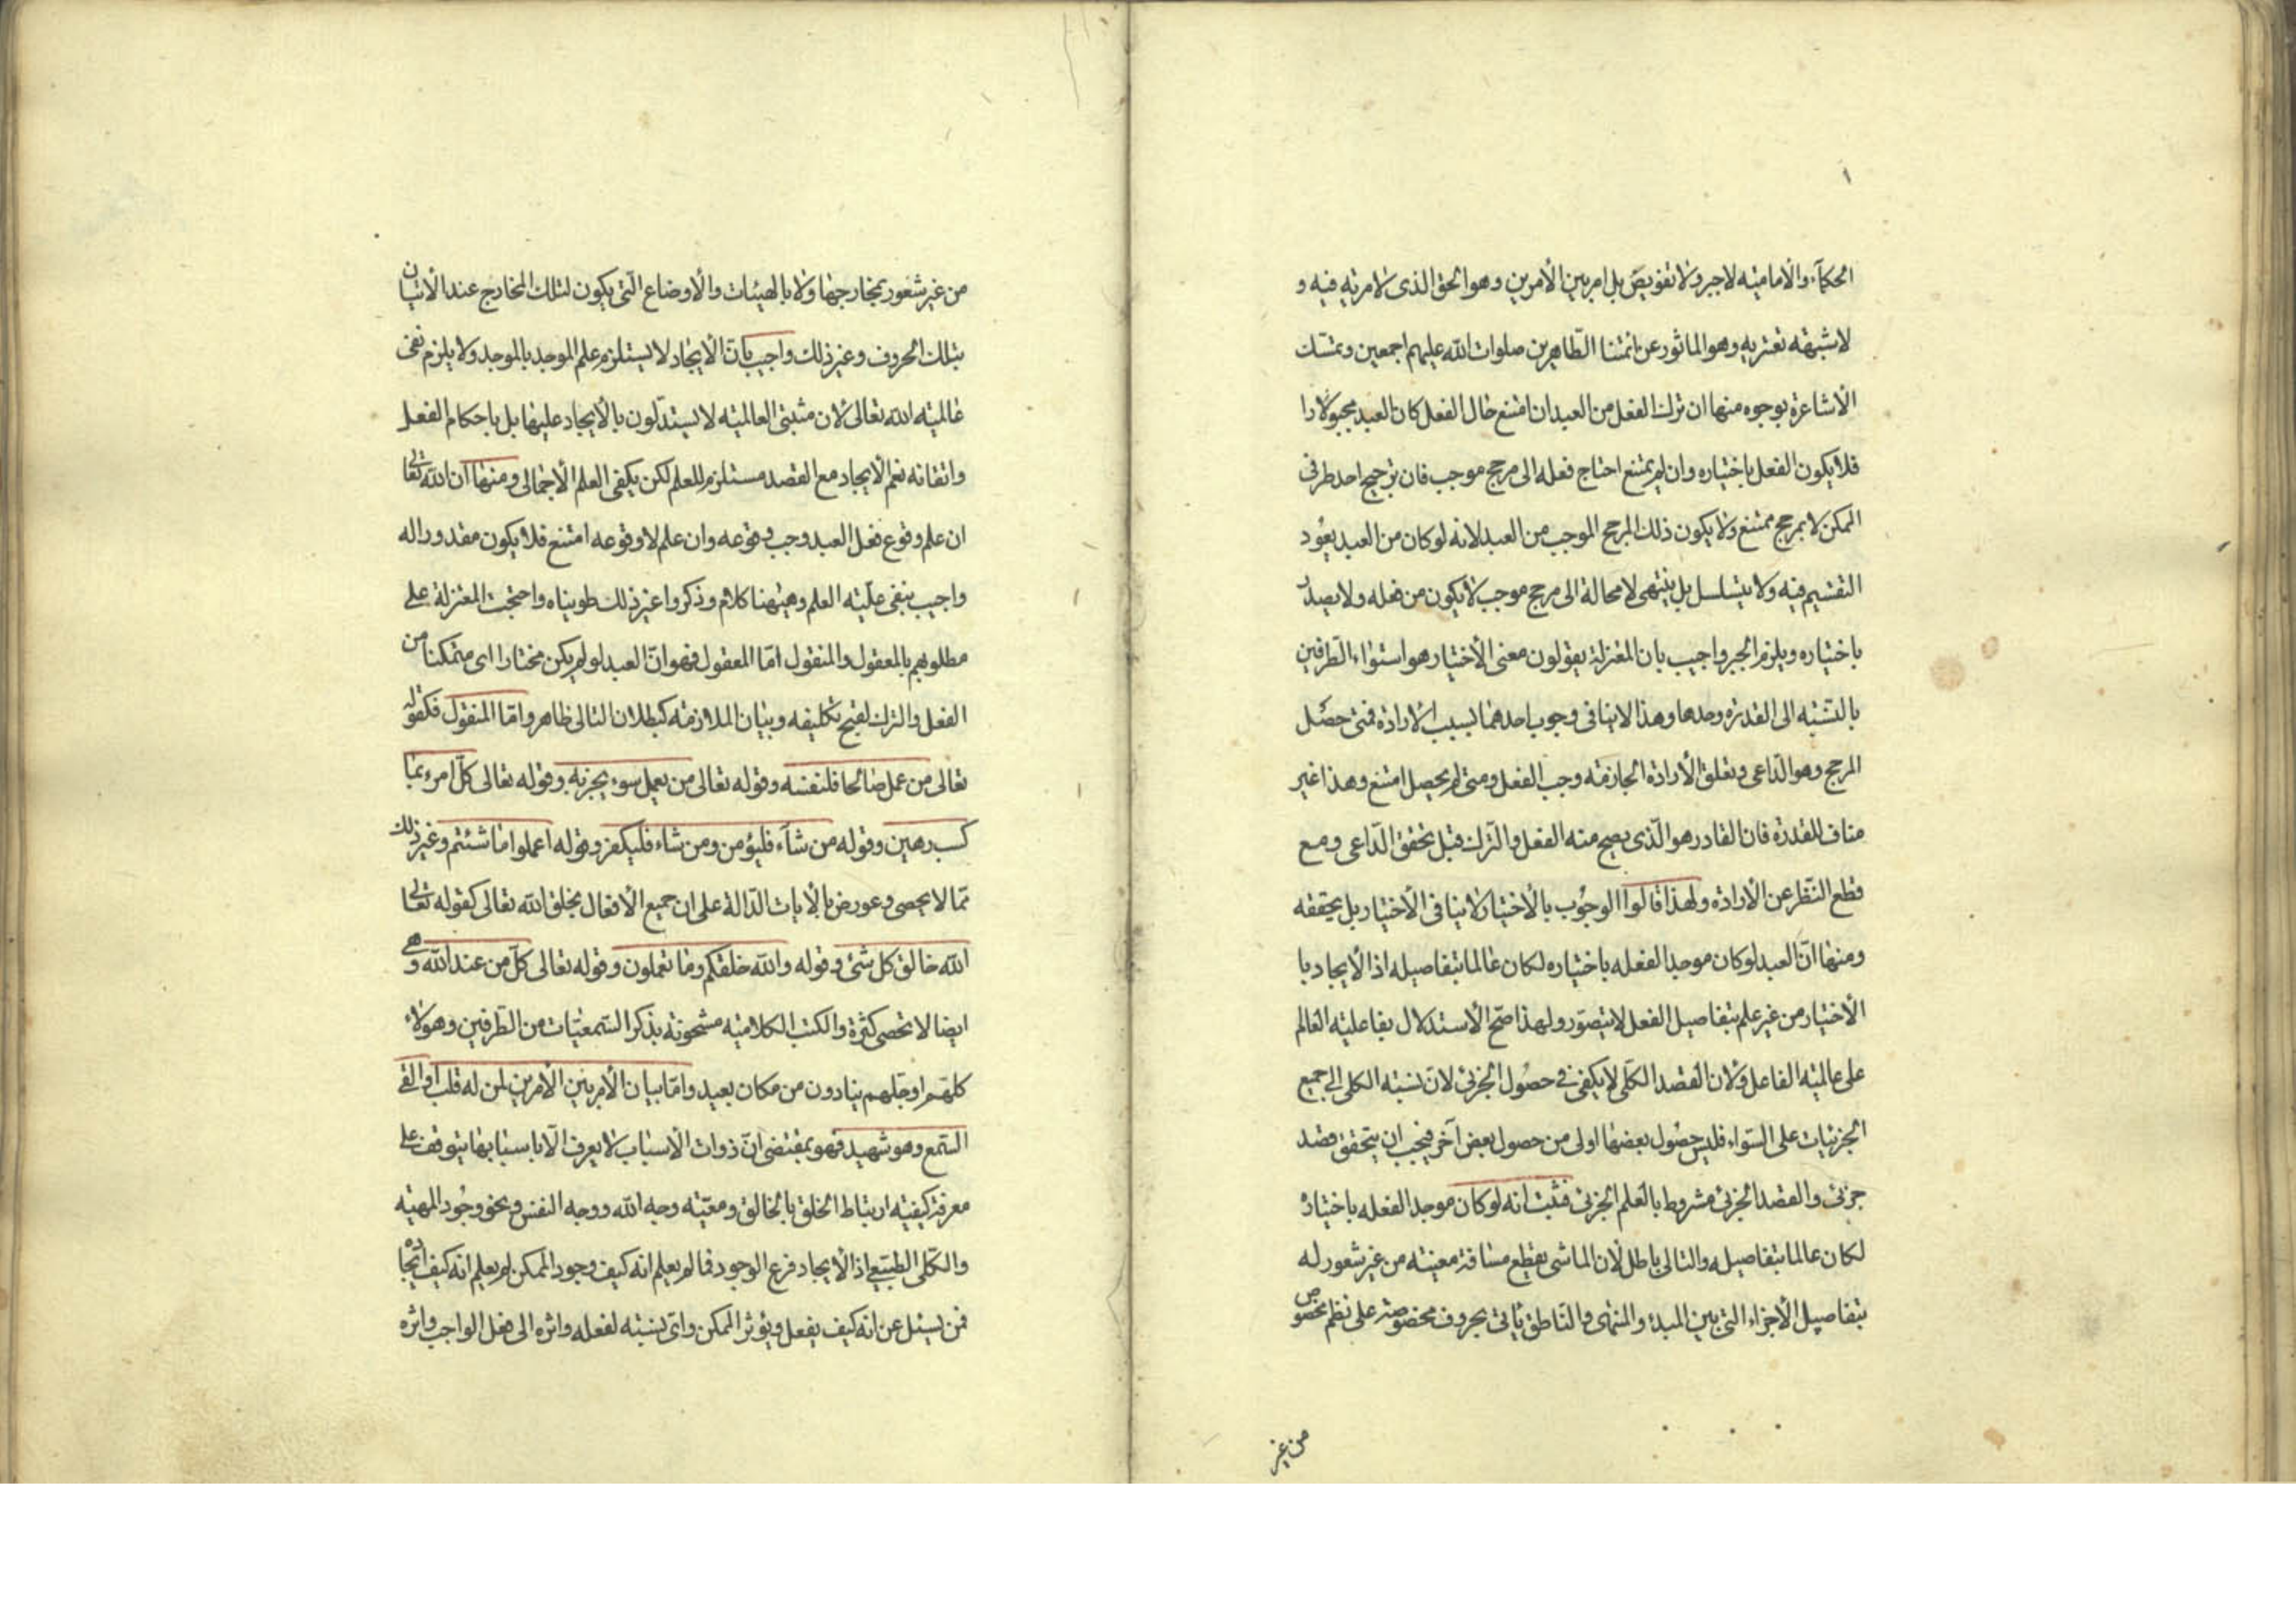 الحكمآء والأماميّه لا جبر ولا تفويض بل امر بين الأمرين وهو الحق الذى لا مريّه فيه و
لا شبهة تعتريه وهو الماثور عن ائمتنا الطّاهرين صلوات الله عليهم اجمعين وتمسّك
الأشاعرة بوجوه منها ان ترك الفعل من العبد ان امتنع حال الفعل كان العبد مجبولا را
فلا يكون الفعل باختياره وان لم يمتنع احتاج فعله الى مرجح موجب فان ترجيح احد طرفى
الممكن لا بمرجح ممتنع ولا يكون ذلك المرجح الموجب من العبد لانه لو كان من العبد يعود
التقسيم فيه ولا يتسلسل بل ينتهى لا محالة الى مرجح موجب لا يكون من فعله ولا يصدر
باختياره ويلزم الجبر واجيب بان المعتزلة يقولون معنى الأختيار هو استواء الطّرفين
بالنّسبه الى القدرة وحدها وهذا لا ينافى وجوب احدهما بسبب الارادة فمتى حصل
المرجح وهو الدّاعى وتعلق الأرادة الجازمه وجب الفعل ومتى لم يحصل امتنع وهذا غير
مناف للقدرة فان القادر هو الّذى يصح منه الفعل والترك قبل تحقق الدّاعى ومع
قطع النّظر عن الأرادة ولهذا قالوا الوجوب بالأختيار لا ينافى الأختيار بل يحققه
ومنها انّ العبد لو كان موجدا لفعله باختياره لكان عالما بتفاصيله اذ الأيجاد با
الأختيار من غير علم بتفاصيل الفعل لا يتصوّر ولهذا صحّ الأستدلال بفاعليه العالم
على عالميّه الفاعل ولان القصد الكلّى لا يكفى فى حصول الجزئى لانّ نسبة الكلى الى جميع
الجزئيات على السّواء فليس حصول بعضها اولى من حصول بعض آخر فيجب ان يتحقق قصد
جزئى والقصد الجزئى مشروط بالعلم الجزئى فثبت انه لو كان موجدا لفعله باختياره
لكان عالما بتفاصيله والتالى باطل لأن الماشى يقطع مسافة معينه من غير شعور له
بتفاصيل الأجزاء التى بين المبدء والمنتهى والنّاطق يأتى بحروف مخصوصة على نظم مخصوص
من غير
من غير شعور بمخارجها ولا بالهيئات والأوضاع الّتى يكون لتلك المخارج عند الأتيان
بتلك الحروف وغير ذلك واجيب بانّ الأيجاد لا يستلزم علم الموجد بالموجد ولا يلزم نفى
عالميّه الله تعالى لأن مثبتى العالميّه لا يستدلّون بالأيجاد عليها بل باحكام الفعل
واتقانه نعم الأيجاد مع القصد مستلزم للعلم لكن يكفى العلم الأجمالى ومنها ان الله تعالى
ان علم وقوع فعل العبد وجب وقوعه وان علم لا وقوعه امتنع فلا يكون مقدورا له
واجيب بنفى علّيّه العلم وهيهنا كلام وذكروا غير ذلك طويناه واحتجت المعتزلة على
مطلوبهم بالمعقول والمنقول امّا المعقول فهو انّ العبد لو لم يكن مختارا اى متمكنا من
الفعل والترك لقبح تكليفه وبيان الملازمه كبطلان التالى ظاهر وامّا المنقول فكقوله
تعالى من عمل صالحا فلنفسه وقوله تعالى من يعمل سوء يجز به وقوله تعالى كلّ امرء بما
كسب رهين وقوله من شآء فليؤمن ومن شاء فليكفر وقوله اعملوا ما شئتم وغير ذلك
ممّا لا يحصى وعورض بالأيات الدّالة على ان جميع الأفعال بخلق الله تعالى كقوله تعالى
الله خالق كل شئ وقوله والله خلقكم وما تعملون وقوله تعالى كلّ من عند الله وهى
ايضا لا تحصى كثرة والكتب الكلاميّه مشحونة بذكر السّمعيّات من الطّرفين وهؤلاء
كلهم او جلهم ينادون من مكان بعيد وامّا بيان الأمر بين الأمرين لمن له قلب او القى
السّمع وهو شهيد فهو بمقتضى انّ ذوات الأسباب لا يعرف الّا باسبابها يتوقف على
معرفة كيفيّة ارتباط الخلق بالخالق ومعيّته وجه الله ووجه النفس ونحو وجود المهيّه
والكلّى الطبيعى اذ الأيجاد فرع الوجود فما لم يعلم انه كيف وجود الممكن لم يعلم انه كيف ايجاده
فمن يسئل عن انه كيف يفعل ويؤثر الممكن واىّ نسبته لفعله واثره الى فعل الواجب واثره